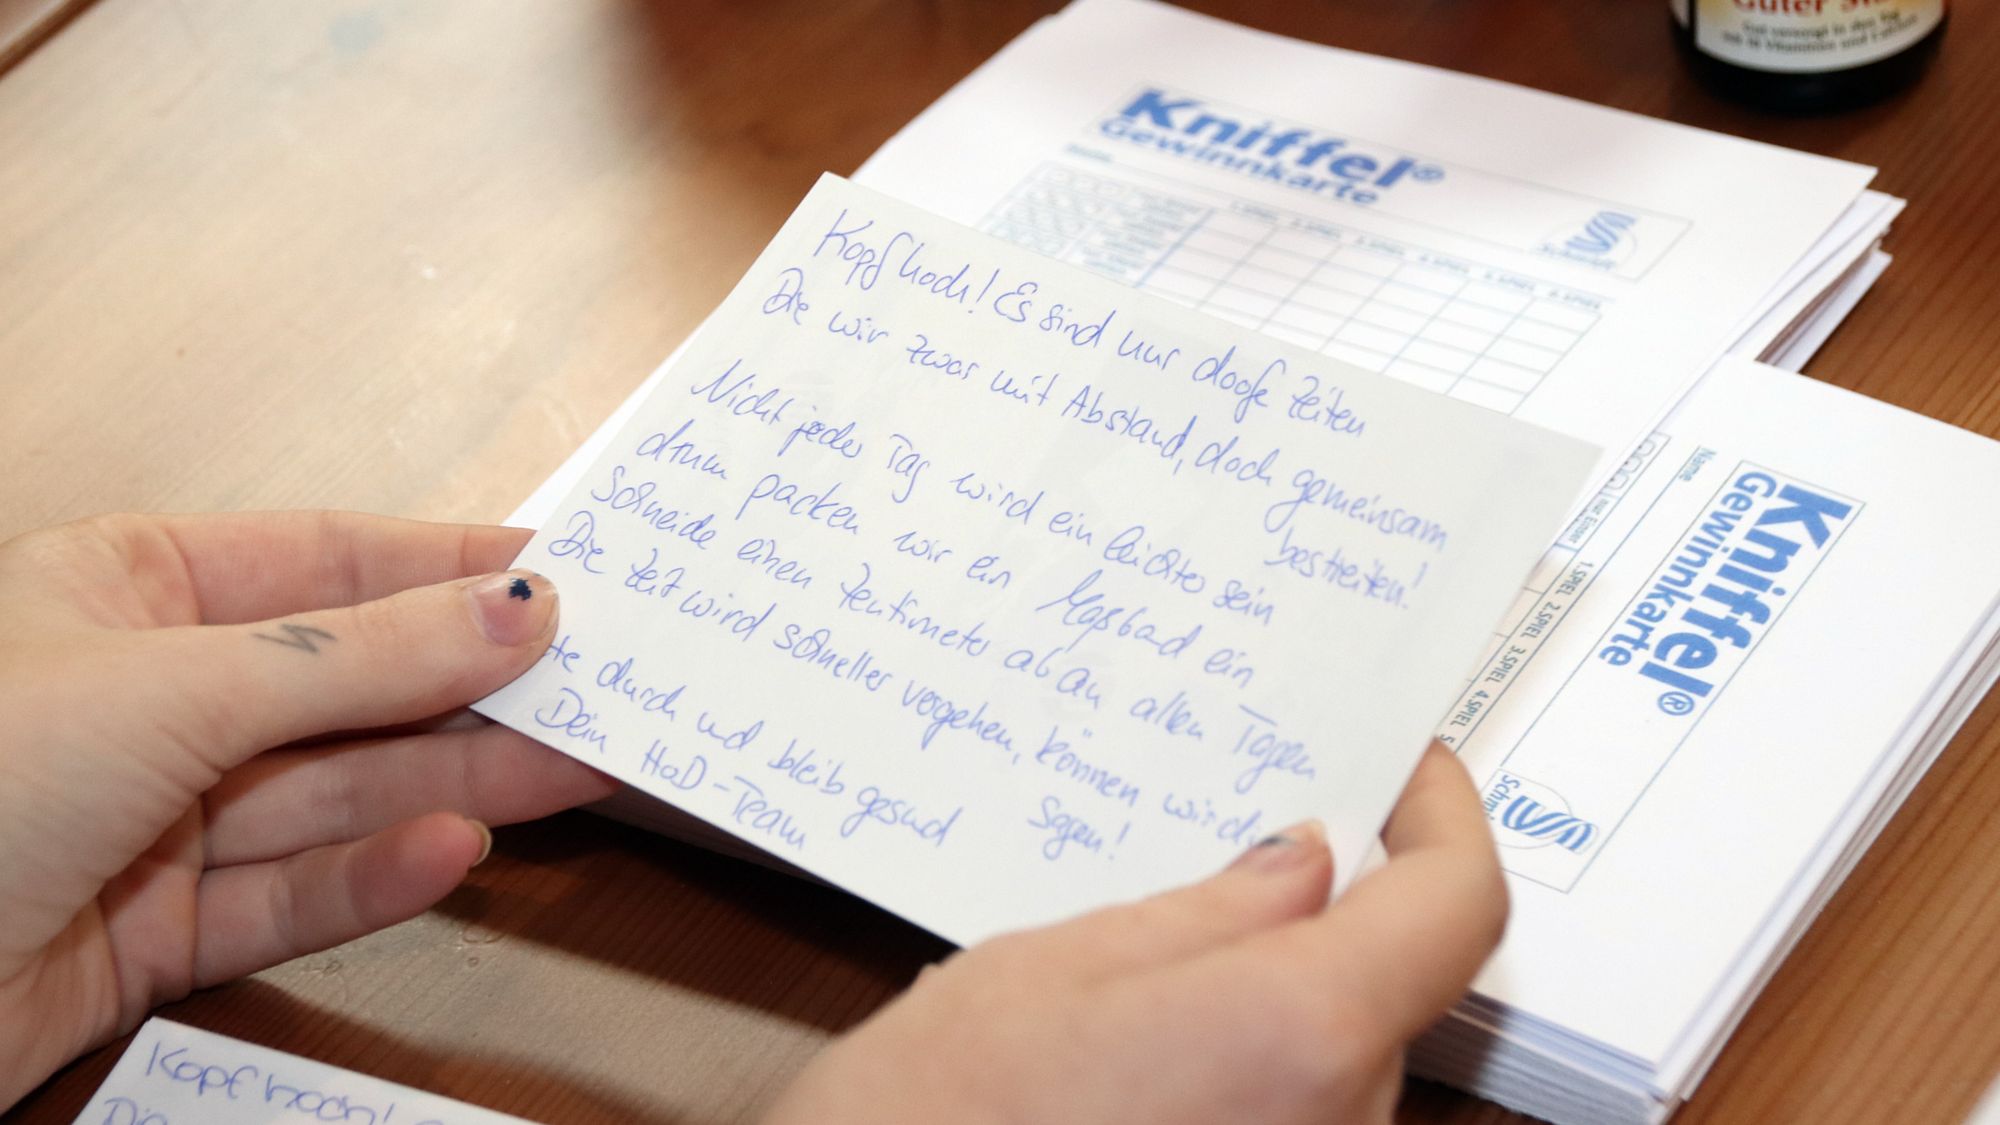 Guter
Kniffel®
Gewinnkarte
Kopf hoch! Es sind nur doofe Zeiten
Die wir zwar mit Abstand, doch gemeinsam
bestreiten!
Nicht jeder Tag wird ein leichter sein
drum packen wir ein Maßband ein
Schneide einen Zentimeter ab an allen Tagen
Die Zeit wird schneller vergehen, können wir dir
sagen!
durch und bleib gesund
Dein HaD-Team
Kniffel®
Gewinnkarte
Name
1.SPIEL 2.SPIEL 3.SPIEL 4.SPIEL
Kopf hoch!
Die